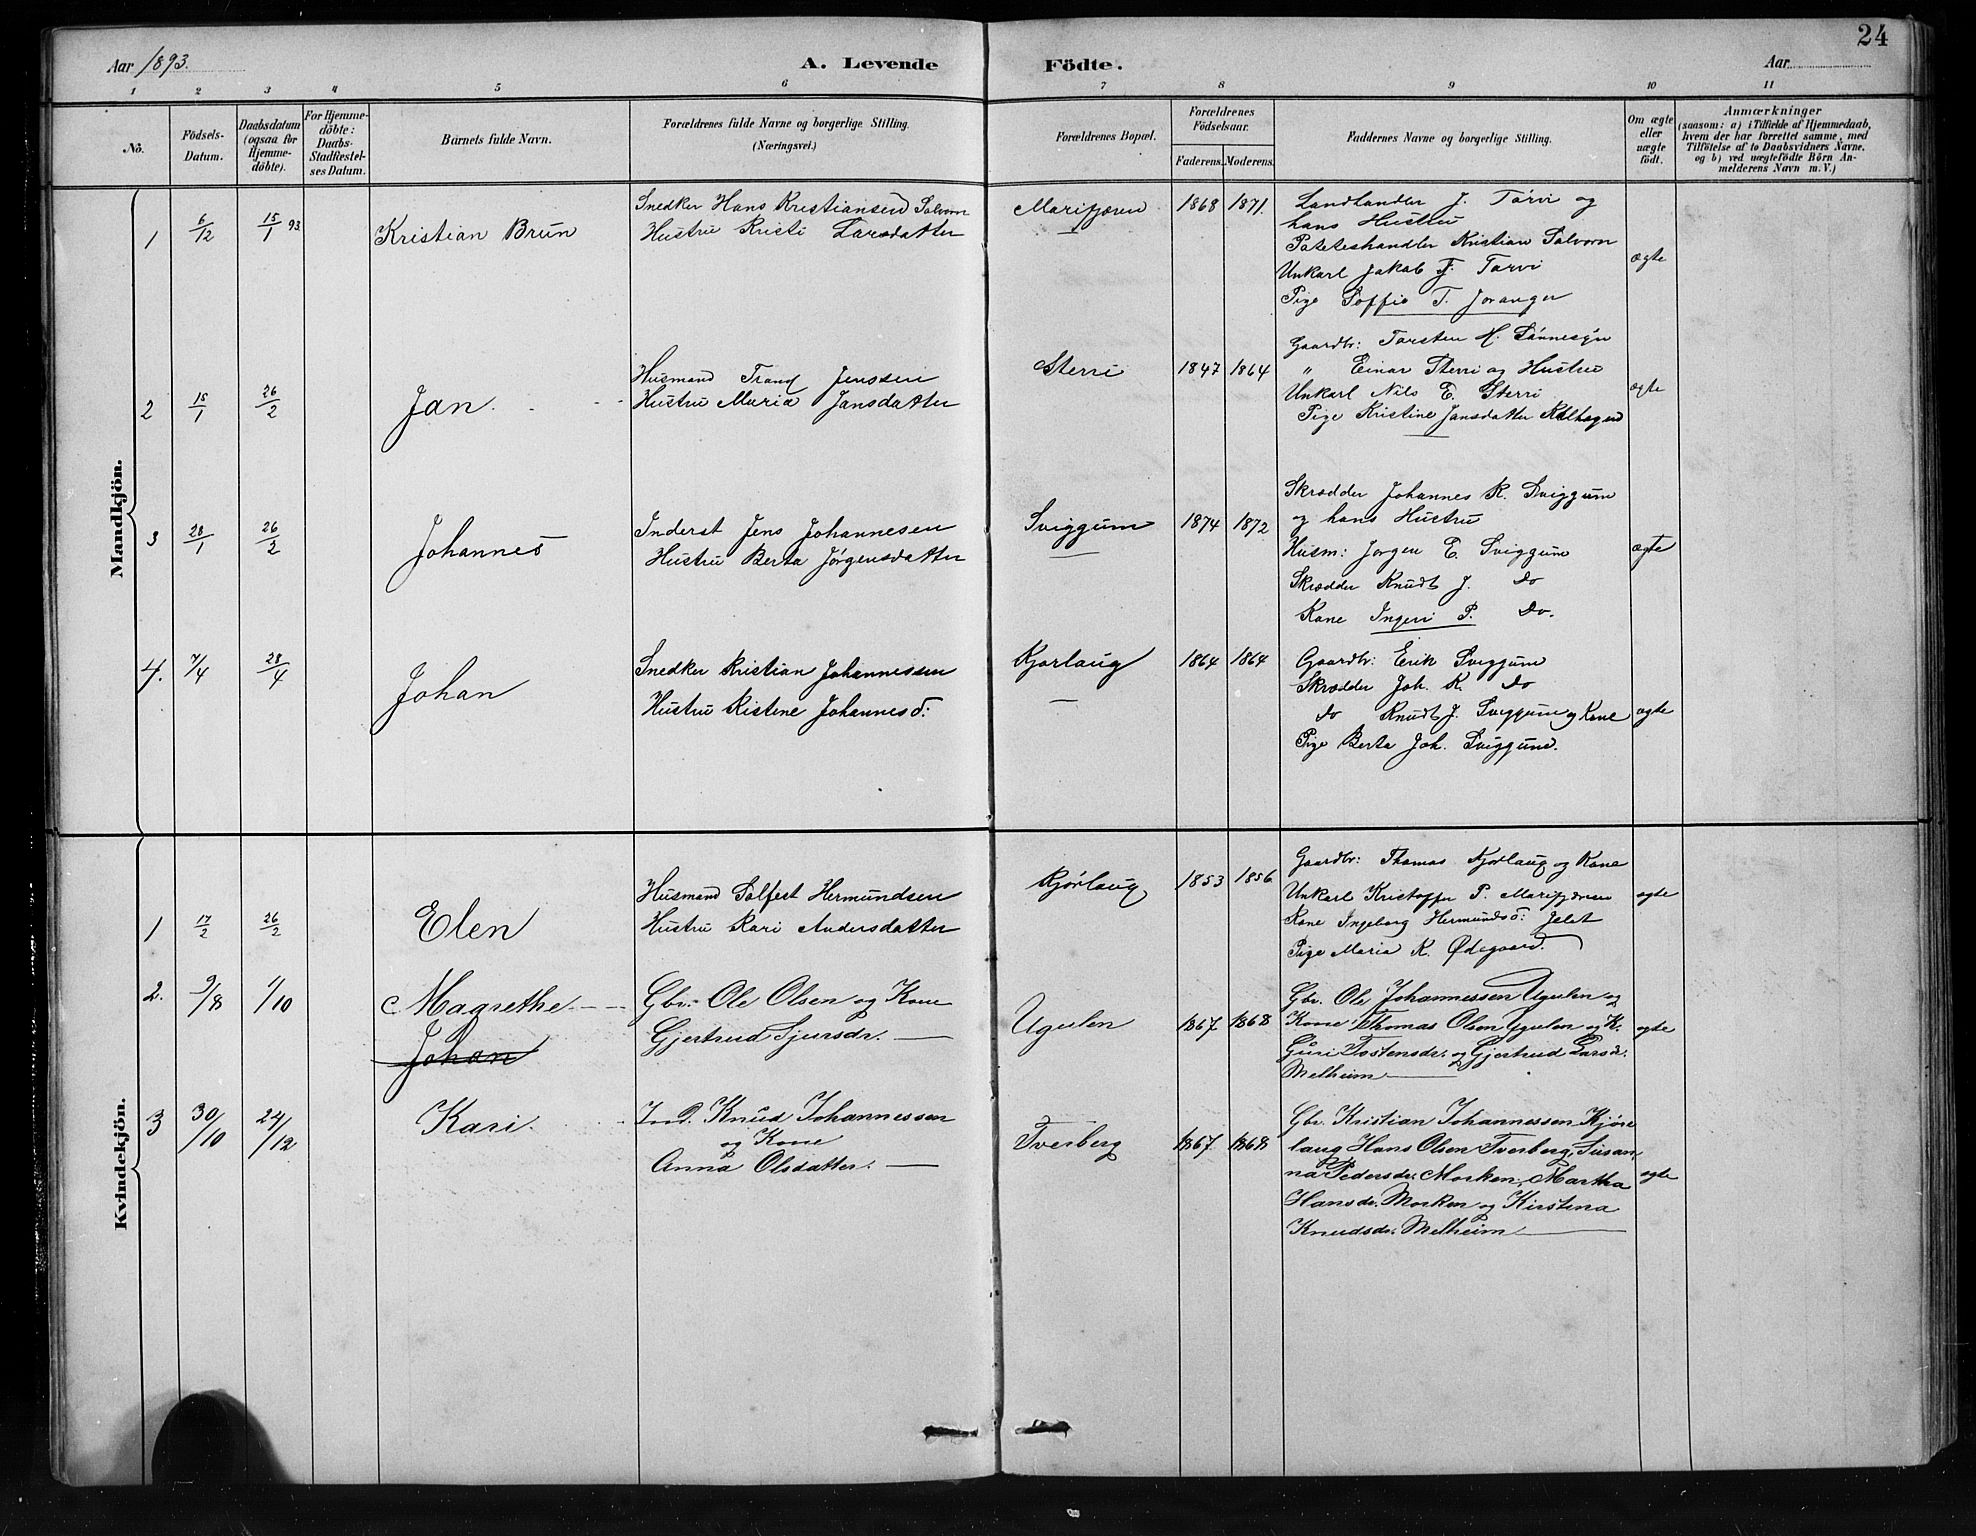 24
Aar 1893.
A. Levende Födte.
Aar
1 2 3 4 5 6 7 8 9 10 11
No.
Födsels-Datum.
Daabsdatum (ogsaa for Hjemme-döbte).
For Hjemme-döbte: Daabs-Stadfæstel-ses Datum.
Barnets fulde Navn.
Forældrenes fulde Navne og borgerlige Stilling.
(Næringsvei.)
Forældrenes Bopæl.
Forældrenes Födselsaar.
Faderens. Moderens.
Faddernes Navne og borgerlige Stilling.
Om ægte eller uægte födt.
Anmærkninger
(saasom: a) i Tilfælde af Hjemmedaab,
hvem der har forrettet samme, med
Tilföielse af to Daabsvidners Navne,
og b) ved uægtefödte Börn An-
melderens Navn m. V.)
Mandkjön.
1 6/12 15/1 93 Kristian Brun
Snedker Hans Kristiansen Solvorn
Hustru Kristi Larsdatter
Marifjæren 1868 1871.
Landhandler J. Tørvi og
hans Hustru
Kristian Solvorn
Unkarl Jakob J. Tørvi
Pige Soffie T. Joranger
ægte
2 15/1 26/2 Jan.
Husmand Trond Jenssen
Hustru Maria Jansdatter
Sterri 1847 1864
Gaardbr: Torsten H. Sønnesyn
" Einar Sterri og Hustru
Unkarl Nils E. Sterri
Pige Kristine Jansdatter
ægte
3 28/1 26/2 Johannes
Inderst Jens Johannesen
Hustru Berta Jørgensdatter
Sviggum 1874 1872
Skrædder Johannes K. Sviggum
og hans Hustru
Husm: Jørgen E. Sviggum
Skrædder Knudt J. do
Kone Ingeri P. do.
ægte
4. 7/4 28/4 Johan
Snedker Kristian Johannessen
Hustru Kistene Johannesd:
Kjørlaug 1864 1864
Gaardbr: Erik Sviggum
Skrædder Joh. K. do
do Knudt J. Sviggum og Kone
Pige Berta Joh. Sviggum.
ægte
Kvindekjön.
1 17/2 26/2 Elen
Husmand Solfest Hermundsen
Hustru Kari Andersdatter
Kjørlaug 1853 1856
Gaardbr: Thomas Kjørlaug og Kone
Unkarl Kristoffer P. Marifjæren
Kone Ingeborg Hermundsd:
Pige Maria K. Ødegaard.
ægte
2. 9/8 1/10 Magrethe
Johan
Gbr. Ole Olsen og Kone
Gjertrud Sjursdr.
Ugulen 1867. 1868
Gbr. Ole Johannessen Ugulen og
Kone Thomas Olsen Ugulen og K.
Guri Tostensdr. og Gjertrud Larsdr.
Melheim
ægte
3 30/10 24/12 Kari.
Ind. Knud Johannessen
og Kone
Anna Olsdatter.
Tverberg 1867. 1868
Gbr. Kristian Johannessen Kjør
laug Hans Olsen Tverberg, Susan,
na Pedersdr. Morken, Martha
Hansdr. Morken og Kirstina
Knudsdr. Melheim
ægte